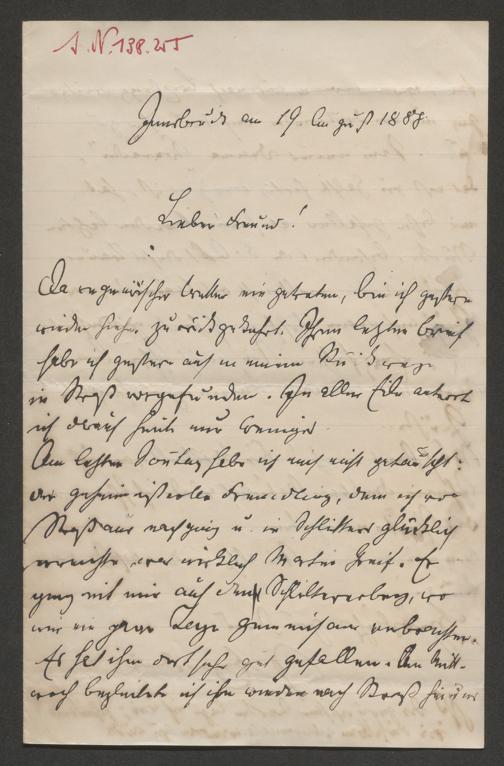 I. N. 138.255
Innsbruck am 19 August 1888
Lieber Freund!
Da regnerischer Wetter ein getreten, bin ich gestern
wieder hieher zurückgekehrt. Ihren letzten Brief
habe ich gestern auf meinem Rückweg
in Straß vorgefunden. In aller Eile antworte
ich darauf heute nur weniges
Am letzten Sonntag habe ich mich nicht getäuscht:
der geheimnißvolle Fremdling, dem ich von
Straß aus nachging u. in Schlitters glücklich
erreichte, war wirklich Martin Greif. Er
ging mit mir auf den, wo
wir ein paar Tage gemeinsam verbrachten.
Es hat ihm dort sehr gut gefallen. Am Mitt-
woch begleitete ich ihn wieder nach Straß hinaus